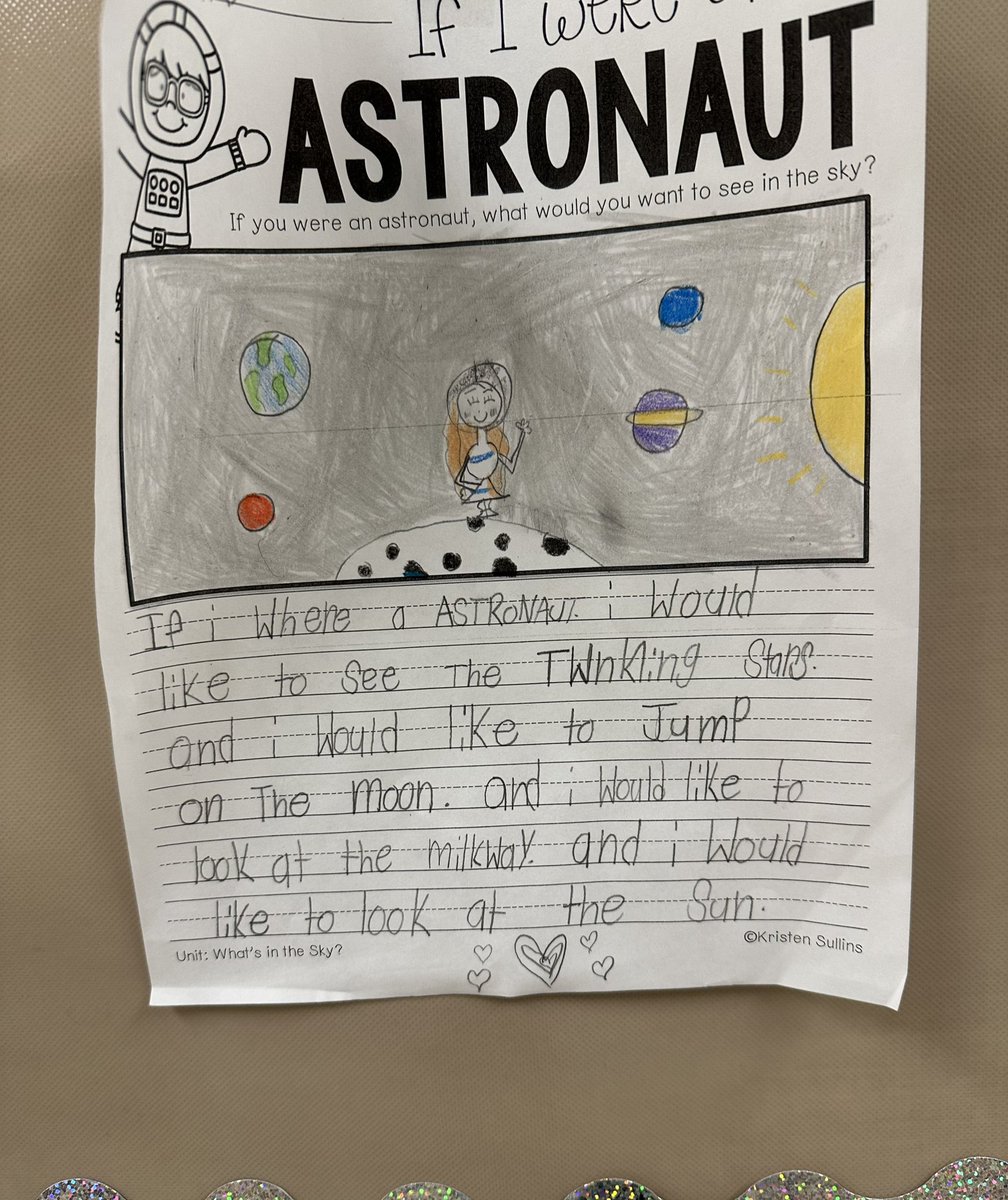 If I were
ASTRONAUT
If you were an astronaut, what would you want to see in the sky?
If i Where a ASTRONAUT. i Would
like to See The TWnkling Stars.
and i Would like to Jump
on The moon. and i Would like to
look at the milkway. and i Would
like to look at the Sun.
Unit: What's in the Sky?
©Kristen Sullins